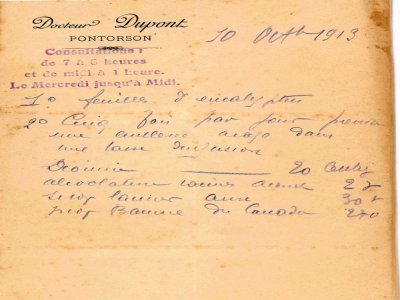 Docteur Dupont
PONTORSON
10 Octb 1913
Consultations:
de 7 à 8 heures
et de midi à 1 heure.
Le Mercredi jusqu'à Midi.
1o feuilles d'eucalyptus
2o Cinq fois par jour prendre
une cuillerée dans
une tasse d'infusion
Dionine 20 centig
alcoolature racines aconit
sirop
sirop Baume du Canada 270